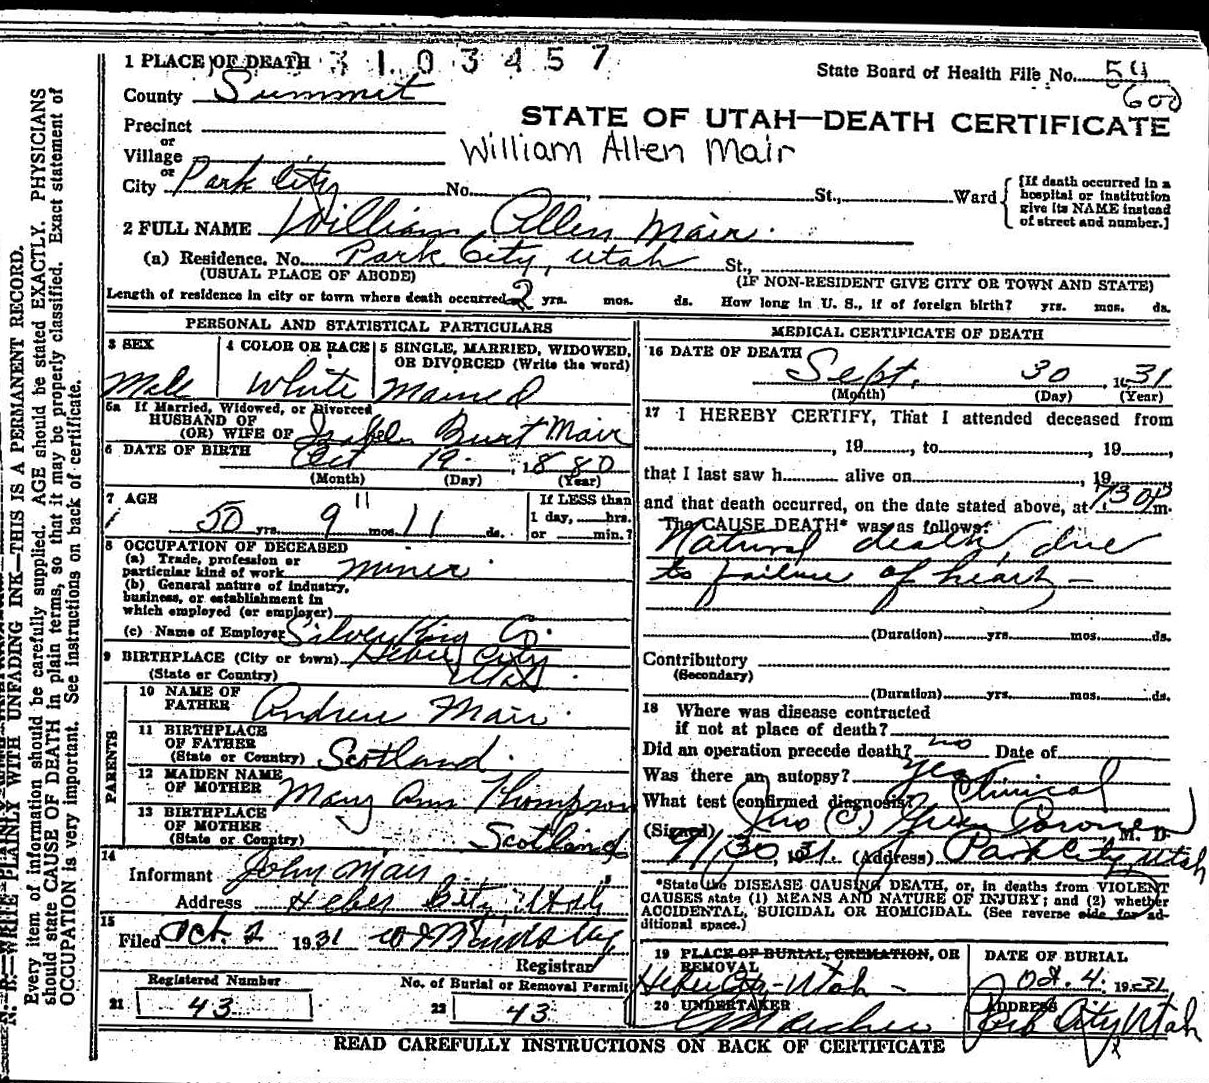 1 PLACE OF DEATH 3 1 0 3 4 5 7
State Board of Health File No. 54
600
County Summit
STATE OF UTAH—DEATH CERTIFICATE
Precinct
or
Village
William Allen Mair
or
City Park City No. St., Ward
[If death occurred in a
hospital or institution
give its NAME instead
of street and number.]
2 FULL NAME William Allen Mair
(a) Residence. No. Park City, Utah St.,
(USUAL PLACE OF ABODE) (IF NON-RESIDENT GIVE CITY OR TOWN AND STATE)
Length of residence in city or town where death occurred 2 yrs. mos. ds. How long in U. S., if of foreign birth? yrs. mos. ds.
PERSONAL AND STATISTICAL PARTICULARS
3 SEX 4 COLOR OR RACE 5 SINGLE, MARRIED, WIDOWED,
OR DIVORCED (Write the word)
Male White Married
5a If Married, Widowed, or Divorced
HUSBAND OF
(OR) WIFE OF Burt Mair
6 DATE OF BIRTH Oct 19 1880
(Month) (Day) (Year)
7 AGE 11 If LESS than
50 yrs. 9 mos. 11 ds. 1 day, hrs.
or min.?
8 OCCUPATION OF DECEASED
(a) Trade, profession or
particular kind of work miner
(b) General nature of industry,
business, or establishment in
which employed (or employer)
(c) Name of Employer Silver King Co.
9 BIRTHPLACE (City or town) Heber City
(State or Country) Utah
PARENTS
10 NAME OF
FATHER Andrew Mair
11 BIRTHPLACE
OF FATHER
(State or Country) Scotland
12 MAIDEN NAME
OF MOTHER Mary Ann Thompson
13 BIRTHPLACE
OF MOTHER
(State or Country) Scotland
14
Informant John Mair
Address Heber City, Utah
15
Filed Oct. 2 1931
Registrar
Registered Number No. of Burial or Removal Permit
21 43 22 43
MEDICAL CERTIFICATE OF DEATH
16 DATE OF DEATH
Sept. 30, 1931
(Month) (Day) (Year)
17 I HEREBY CERTIFY, That I attended deceased from
, 19 , to , 19 ,
that I last saw h alive on , 19
and that death occurred, on the date stated above, at 730P m.
The CAUSE DEATH* was as follows:
Natural death, due
to failure of heart —
(Duration) yrs. mos. ds.
Contributory
(Secondary)
(Duration) yrs. mos. ds.
18 Where was disease contracted
if not at place of death?
Did an operation precede death? no Date of
Was there an autopsy? yes
What test confirmed diagnosis? Clinical
(Signed) Jno M. D.
9/30, 1931. (Address) Park City, Utah
*State the DISEASE CAUSING DEATH, or, in deaths from VIOLENT
CAUSES state (1) MEANS AND NATURE OF INJURY; and (2) whether
ACCIDENTAL, SUICIDAL OR HOMICIDAL. (See reverse side for ad-
ditional space.)
19 PLACE OF BURIAL, CREMATION, OR
REMOVAL DATE OF BURIAL
Heber City - Utah - Oct. 4. 1931
20 UNDERTAKER ADDRESS
Park City, Utah
READ CAREFULLY INSTRUCTIONS ON BACK OF CERTIFICATE
N. B.—WRITE PLAINLY WITH UNFADING INK—THIS IS A PERMANENT RECORD.
Every item of information should be carefully supplied. AGE should be stated EXACTLY. PHYSICIANS
should state CAUSE OF DEATH in plain terms, so that it may be properly classified. Exact statement of
OCCUPATION is very important. See instructions on back of certificate.